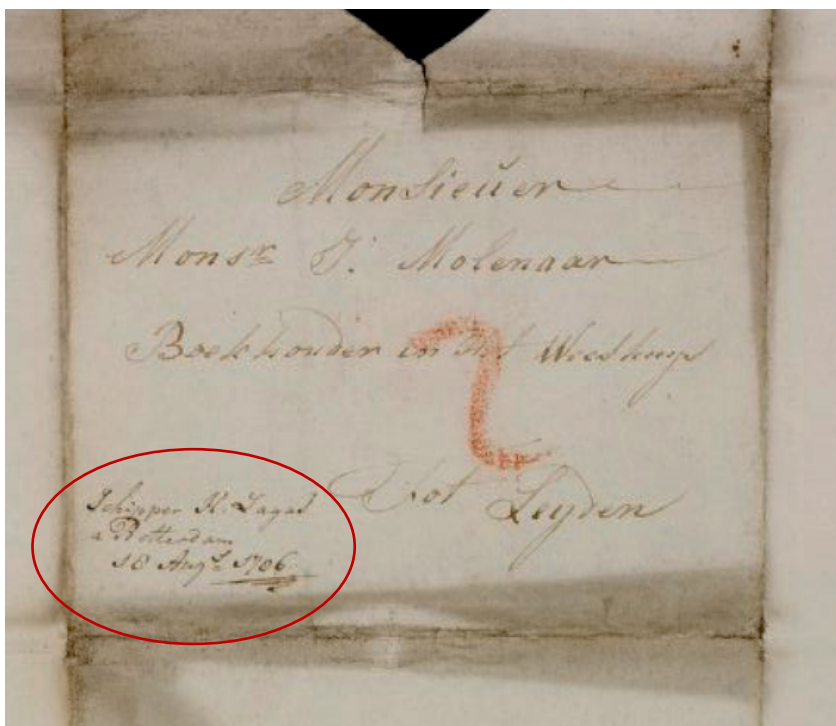 Monsieuer
Monsr. J: Molenaar
Boekhouder in Het Weeshuys
Tot Leyden
2
Schipper K:
a Rotterdam
18 Augt. 1706